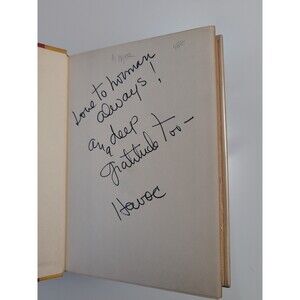 Love to Norman
always!
and a deep
gratitude too —
Havoc